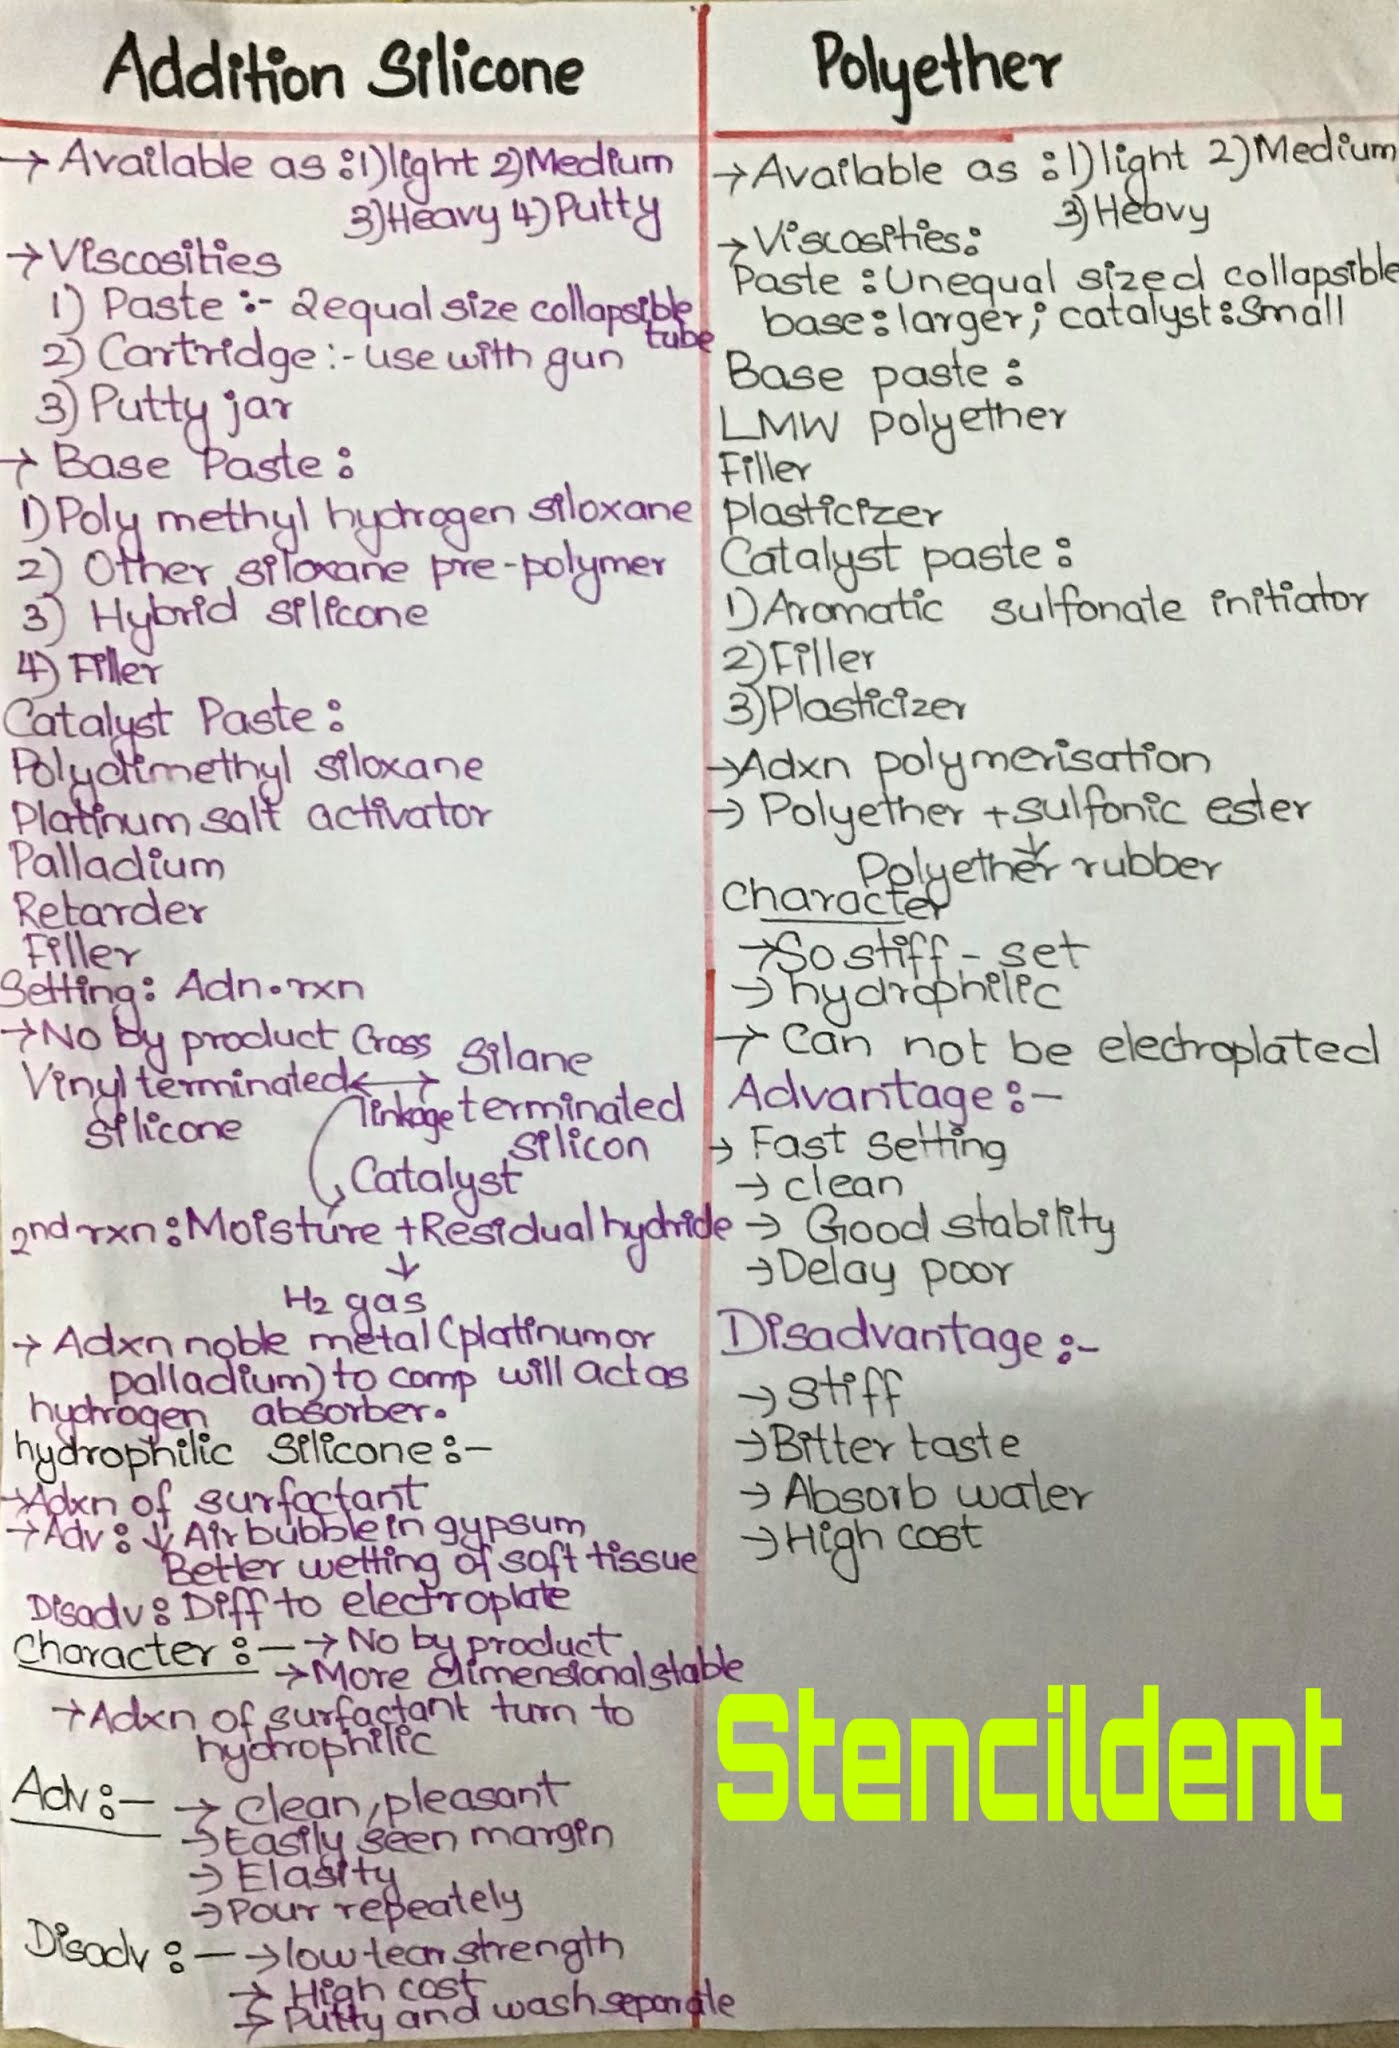 Addition Silicone
→ Available as :1)light 2)Medium
3)Heavy 4)Putty
→ Viscosities
1) Paste :- 2equal size collapsible
tube
2) Cartridge :- use with gun
3) Putty jar
→ Base Paste :
1) Poly methyl hydrogen siloxane
2) Other siloxane pre-polymer
3) Hybrid silicone
4) Filler
Catalyst Paste :
Polydimethyl siloxane
Platinum salt activator
Palladium
Retarder
Filler
Setting: Adn.rxn
→ No by product Cross Silane
Vinyl terminated ↔ linkage terminated
silicone silicon
Catalyst
2nd rxn : Moisture + Residual hydride
↓
H2 gas
→ Adxn noble metal (platinum or
palladium) to comp will act as
hydrogen absorber.
hydrophilic silicone :-
→ Adxn of surfactant
→ Adv : ↓ Air bubble in gypsum
Better wetting of soft tissue
Disadv : Diff to electroplate
Character :- → No by product
→ More dimensional stable
→ Adxn of surfactant turn to
hydrophilic
Adv :- → Clean, pleasant
→ Easily seen margin
→ Elasity
→ Pour repeately
Disadv :- → low tear strength
→ High cost
→ Putty and wash separate
Polyether
→ Available as :1)light 2)Medium
3)Heavy
→ Viscosities:
Paste : Unequal sized collapsible
base : larger; catalyst : small
Base paste :
LMW polyether
Filler
Plasticizer
Catalyst paste :
1) Aromatic sulfonate initiator
2) Filler
3) Plasticizer
→ Adxn polymerisation
→ Polyether + sulfonic ester
↓
Polyether rubber
Character
→ So stiff - set
→ hydrophilic
→ Can not be electroplated
Advantage :-
→ Fast setting
→ clean
→ Good stability
→ Delay poor
Disadvantage :-
→ Stiff
→ Bitter taste
→ Absorb water
→ High cost
Stencildent